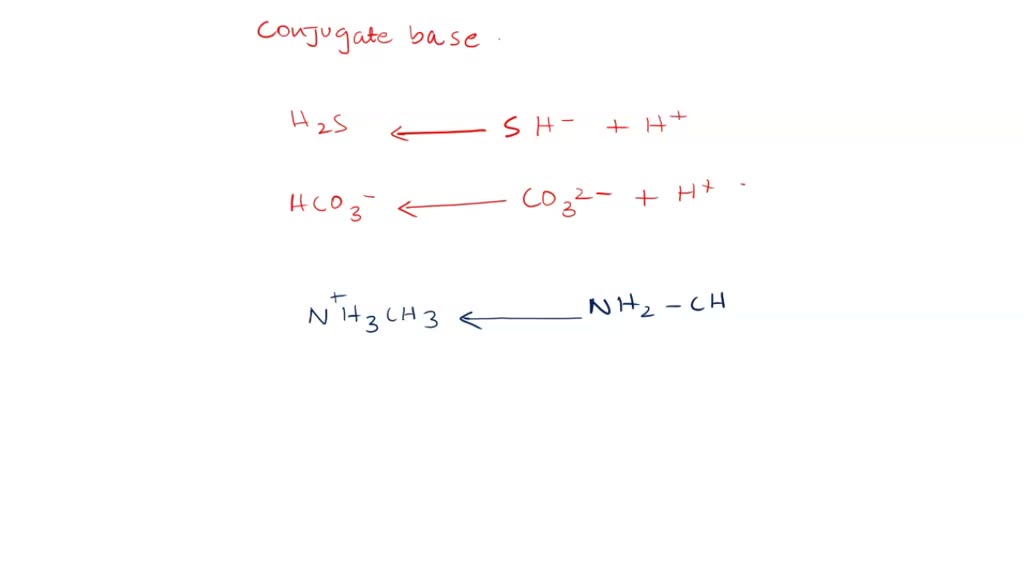 Conjugate base .
H₂S ← SH⁻ + H⁺
HCO₃⁻ ← CO₃²⁻ + H⁺ .
N⁺H₃CH₃ ← NH₂ – CH